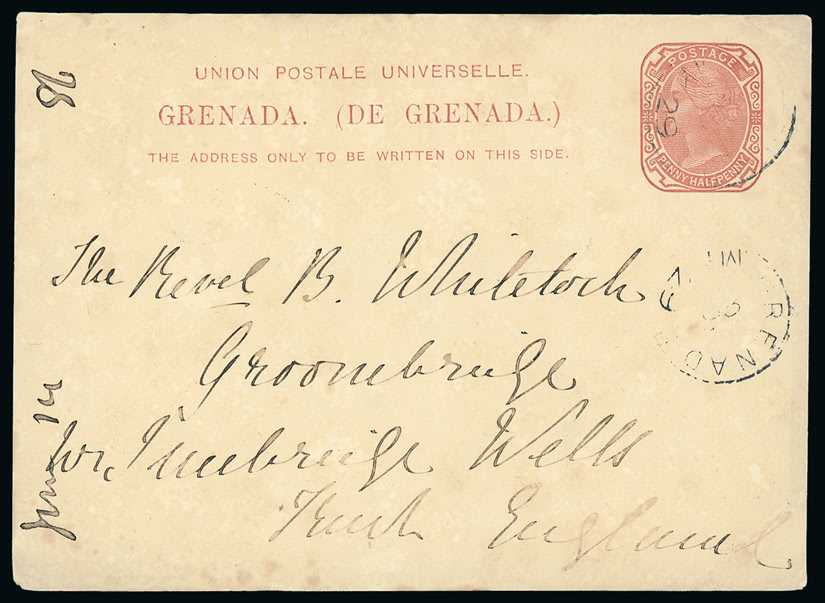 UNION POSTALE UNIVERSELLE.
GRENADA. (DE GRENADA.)
THE ADDRESS ONLY TO BE WRITTEN ON THIS SIDE.
POSTAGE
PENNY HALFPENNY
29
The Revd B. Whitelock
Groombridge
Nr. Tunbridge Wells
Kent England
GRENAD
29